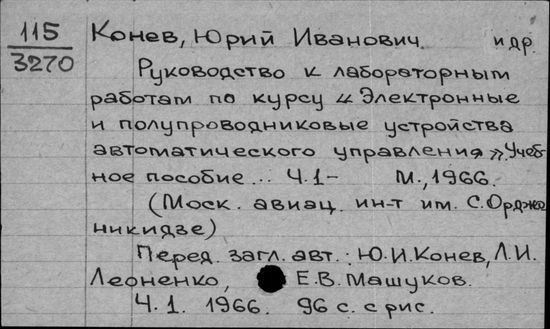 115
3270
Конев, Юрий Иванович. и др.
Руководство к лабораторным
работам по курсу "Электронные
и полупроводниковые устройства
автоматического управления". Учеб-
ное пособие... Ч.1- М., 1966.
(Моск. авиац. ин-т им. С. Орджо
никидзе)
Перед загл. авт.: Ю.И. Конев, Л.И.
Леоненко, Е.В. Машуков.
Ч.1. 1966. 96 с. с рис.